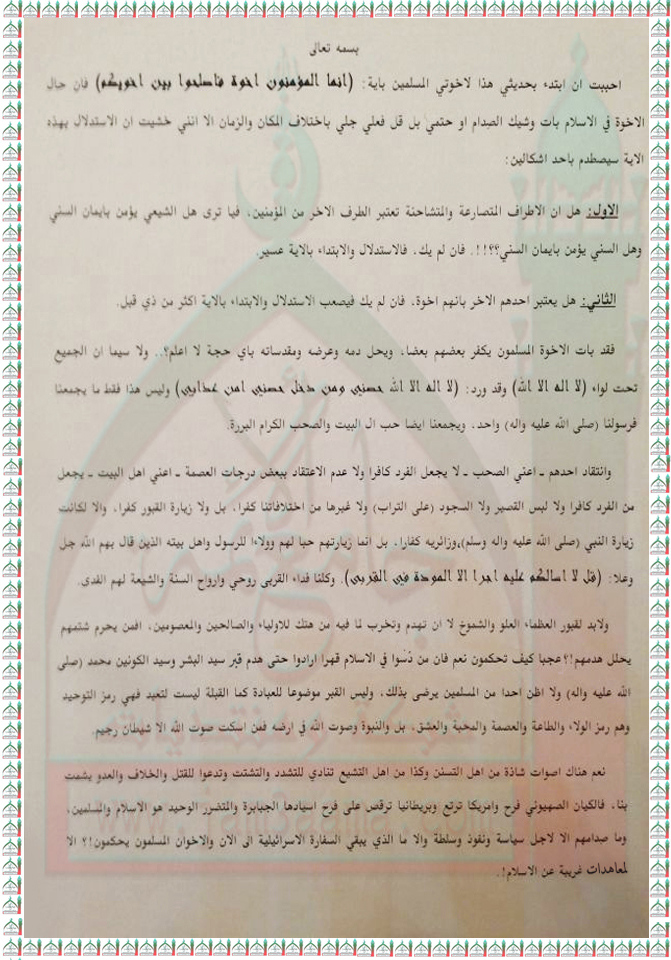 بسمه تعالى
احببت ان ابتدء بحديثي هذا لاخوتي المسلمين باية: (انما المؤمنون اخوة فاصلحوا بين اخويكم) فان حال
الاخوة في الاسلام بات وشيك الصِدام او حتمي بل قل فعلي جلي باختلاف المكان والزمان الا انني خشيت ان الاستدلال بهذه
الاية سيصطدم باحد اشكالين:
الاول: هل ان الاطراف المتصارعة والمتشاحنة تعتبر الطرف الاخر من المؤمنين، فيا ترى هل الشيعي يؤمن بايمان السني
وهل السني يؤمن بايمان السني؟؟!!. فان لم يك، فالاستدلال والابتداء بالاية عسير.
الثاني: هل يعتبر احدهم الاخر بانهم اخوة، فان لم يك فيصعب الاستدلال والابتداء بالاية اكثر من ذي قبل.
فقد بات الاخوة المسلمون يكفر بعضهم بعضا، ويحل دمه وعرضه ومقدساته باي حجة لا اعلم؟.. ولا سيما ان الجميع
تحت لواء (لا اله الا الله) وقد ورد: (لا اله الا الله حصني ومن دخل حصني امن عذابي) وليس هذا فقط ما يجمعنا
فرسولنا (صلى الله عليه واله) واحد، ويجمعنا ايضا حب ال البيت والصحب الكرام البررة.
وانتقاد احدهم ـ اعني الصحب ـ لا يجعل الفرد كافرا ولا عدم الاعتقاد ببعض درجات العصمة ـ اعني اهل البيت ـ يجعل
من الفرد كافرا ولا لبس القصير ولا السجود (على التراب) ولا غيرها من اختلافاتنا كفرا، بل ولا زيارة القبور كفرا، والا لكانت
زيارة النبي (صلى الله عليه واله وسلم)،وزائريه كفارا، بل انما زيارتهم حبا لهم وولاءا للرسول واهل بيته الذين قال بهم الله جل
وعلا: (قل لا اسالكم عليه اجرا الا المودة في القربى). وكلنا فداء القربى روحي وارواح السنة والشيعة لهم الفدى.
ولابد لقبور العظماء العلو والشموخ لا ان تهدم وتخرب لما فيه من هتك للاولياء والصالحين والمعصومين، افمن يحرم شتمهم
يحلل هدمهم!؟عجبا كيف تحكمون نعم فان من دُسّوا في الاسلام قهرا ارادوا حتى هدم قبر سيد البشر وسيد الكونين محمد (صلى
الله عليه واله) ولا اظن احدا من المسلمين يرضى بذلك، وليس القبر موضوعا للعبادة كما القبلة ليست لتعبد فهي رمز التوحيد
وهم رمز الولاء والطاعة والعصمة والمحبة والعشق، بل والنبوة وصوت الله في ارضه فمن اسكت صوت الله الا شيطان رجيم.
نعم هناك اصوات شاذة من اهل التسنن وكذا من اهل التشيع تنادي للتشدد والتشتت وتدعوا للقتل والخلاف والعدو يشمت
بنا، فالكيان الصهيوني فرح وامريكا ترتع وبريطانيا ترقص على فرح اسيادها الجبابرة والمتضرر الوحيد هو الاسلام والمسلمين،
وما صدامهم الا لاجل سياسة ونفوذ وسلطة والا ما الذي يبقي السفارة الاسرائيلية الى الان والاخوان المسلمون يحكمون!؟ الا
لمعاهدات غريبة عن الاسلام!.